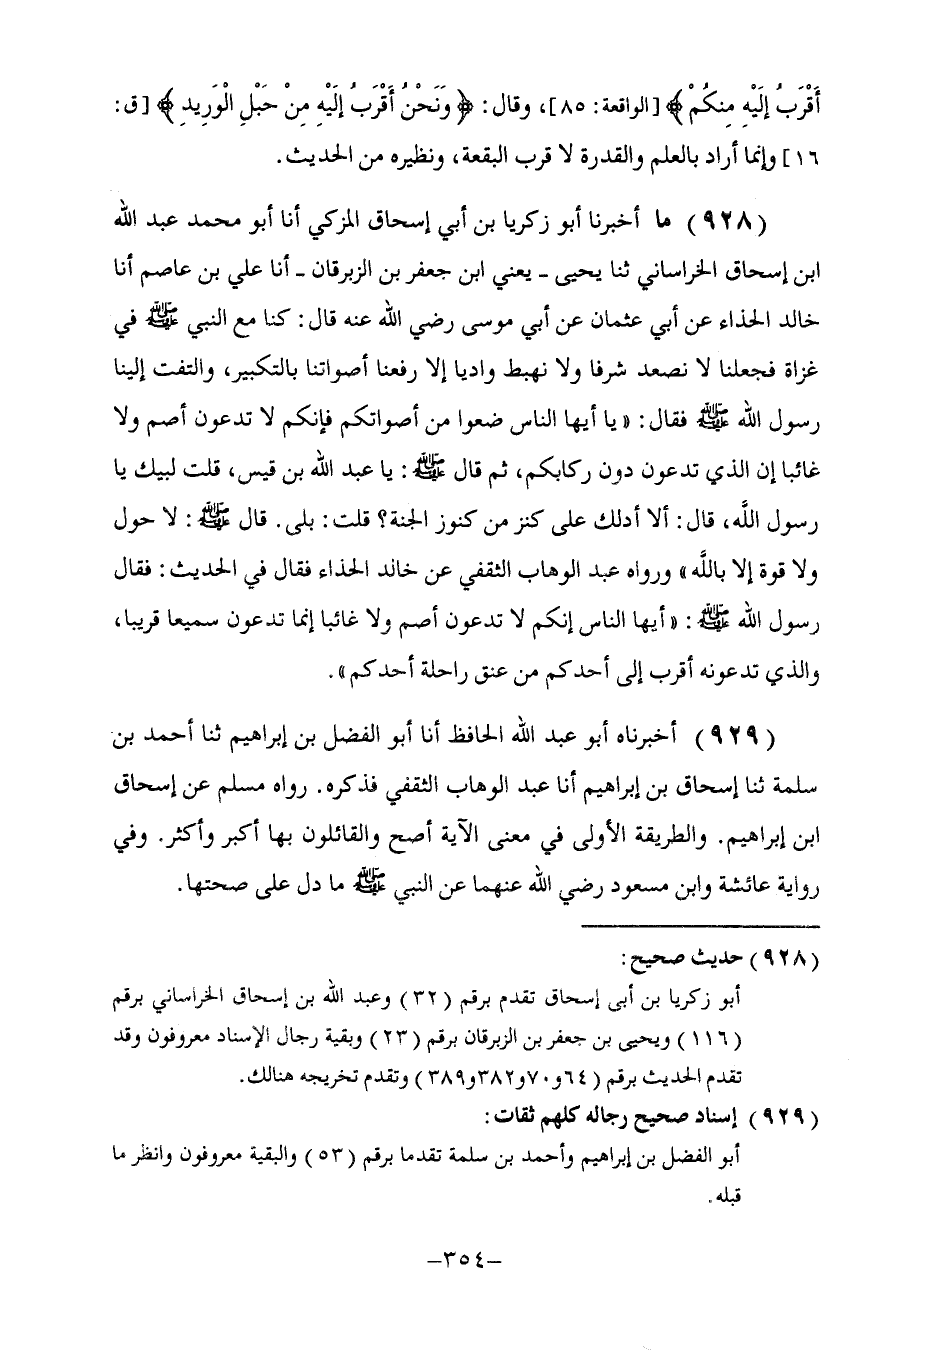 أَقْرَبُ إِلَيْهِ مِنكُمْ ﴾ [الواقعة: ٨٥]، وقال: ﴿ وَنَحْنُ أَقْرَبُ إِلَيْهِ مِنْ حَبْلِ الْوَرِيدِ ﴾ [ق:
١٦] وإنما أراد بالعلم والقدرة لا قرب البقعة، ونظيره من الحديث.
(٩٢٨) ما أخبرنا أبو زكريا بن أبي إسحاق المزكي أنا أبو محمد عبد الله
ابن إسحاق الخراساني ثنا يحيى ـ يعني ابن جعفر بن الزبرقان ـ أنا علي بن عاصم أنا
خالد الحذاء عن أبي عثمان عن أبي موسى رضي الله عنه قال: كنا مع النبي ﷺ في
غزاة فجعلنا لا نصعد شرفا ولا نهبط واديا إلا رفعنا أصواتنا بالتكبير، والتفت إلينا
رسول الله ﷺ فقال: «يا أيها الناس ضعوا من أصواتكم فإنكم لا تدعون أصم ولا
غائبا إن الذي تدعون دون ركابكم، ثم قال ﷺ: يا عبد الله بن قيس، قلت لبيك يا
رسول اللَّه، قال: ألا أدلك على كنز من كنوز الجنة؟ قلت: بلى. قال ﷺ: لا حول
ولا قوة إلا باللَّه» ورواه عبد الوهاب الثقفي عن خالد الحذاء فقال في الحديث: فقال
رسول الله ﷺ: «أيها الناس إنكم لا تدعون أصم ولا غائبا إنما تدعون سميعا قريبا،
والذي تدعونه أقرب إلى أحدكم من عنق راحلة أحدكم».
(٩٢٩) أخبرناه أبو عبد الله الحافظ أنا أبو الفضل بن إبراهيم ثنا أحمد بن
سلمة ثنا إسحاق بن إبراهيم أنا عبد الوهاب الثقفي فذكره. رواه مسلم عن إسحاق
ابن إبراهيم. والطريقة الأولى في معنى الآية أصح والقائلون بها أكبر وأكثر. وفي
رواية عائشة وابن مسعود رضي الله عنهما عن النبي ﷺ ما دل على صحتها.
(٩٢٨) حديث صحيح:
أبو زكريا بن أبى إسحاق تقدم برقم (٣٢) وعبد الله بن إسحاق الخراساني برقم
(١١٦) ويحيى بن جعفر بن الزبرقان برقم (٢٣) وبقية رجال الإسناد معروفون وقد
تقدم الحديث برقم (٦٤و٧٠و٣٨٢و٣٨٩) وتقدم تخريجه هنالك.
(٩٢٩) إسناد صحيح رجاله كلهم ثقات:
أبو الفضل بن إبراهيم وأحمد بن سلمة تقدما برقم (٥٣) والبقية معروفون وانظر ما
قبله.
–٣٥٤–